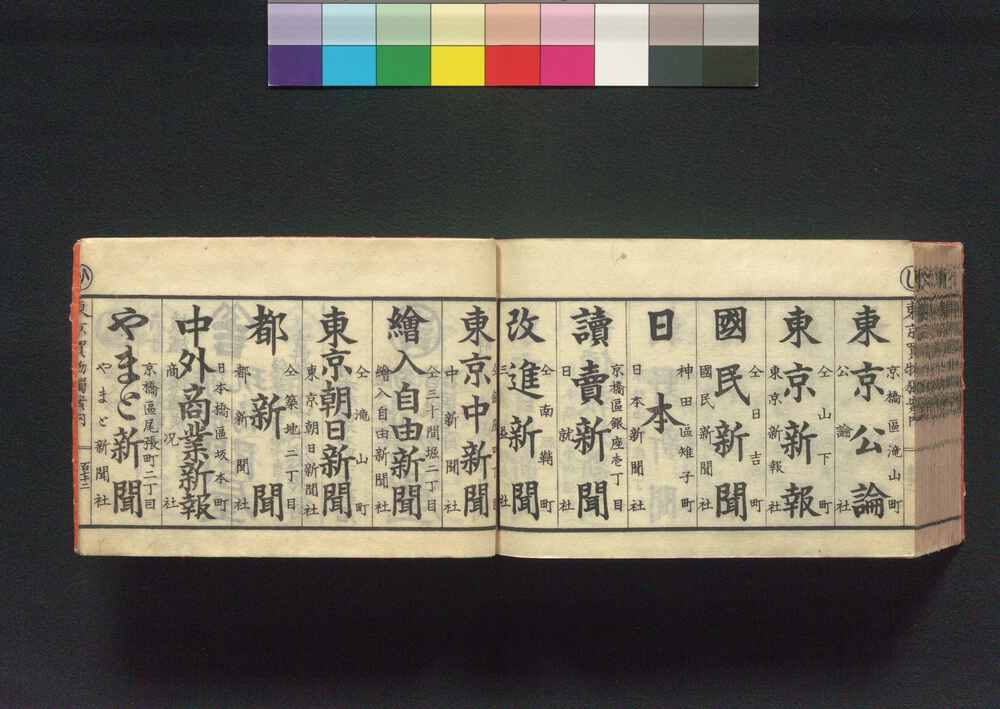 京橋區滝山町
東京公論
公論社
仝山下町
東京新報
東京新報社
仝日吉町
國民新聞
國民新聞社
神田區雉子町
日本
日本新聞社
京橋區銀座壱丁目
讀賣新聞
日就社
仝南鞘町
改進新聞
三益社
東京中新聞
中新聞社
仝三十間堀二丁目
繪入自由新聞
繪入自由新聞社
仝滝山町
東京朝日新聞
東京朝日新聞社
仝築地二丁目
都新聞
都新聞社
日本橋區坂本町
中外商業新報
商况社
京橋區尾張町二丁目
やまと新聞
やまと新聞社